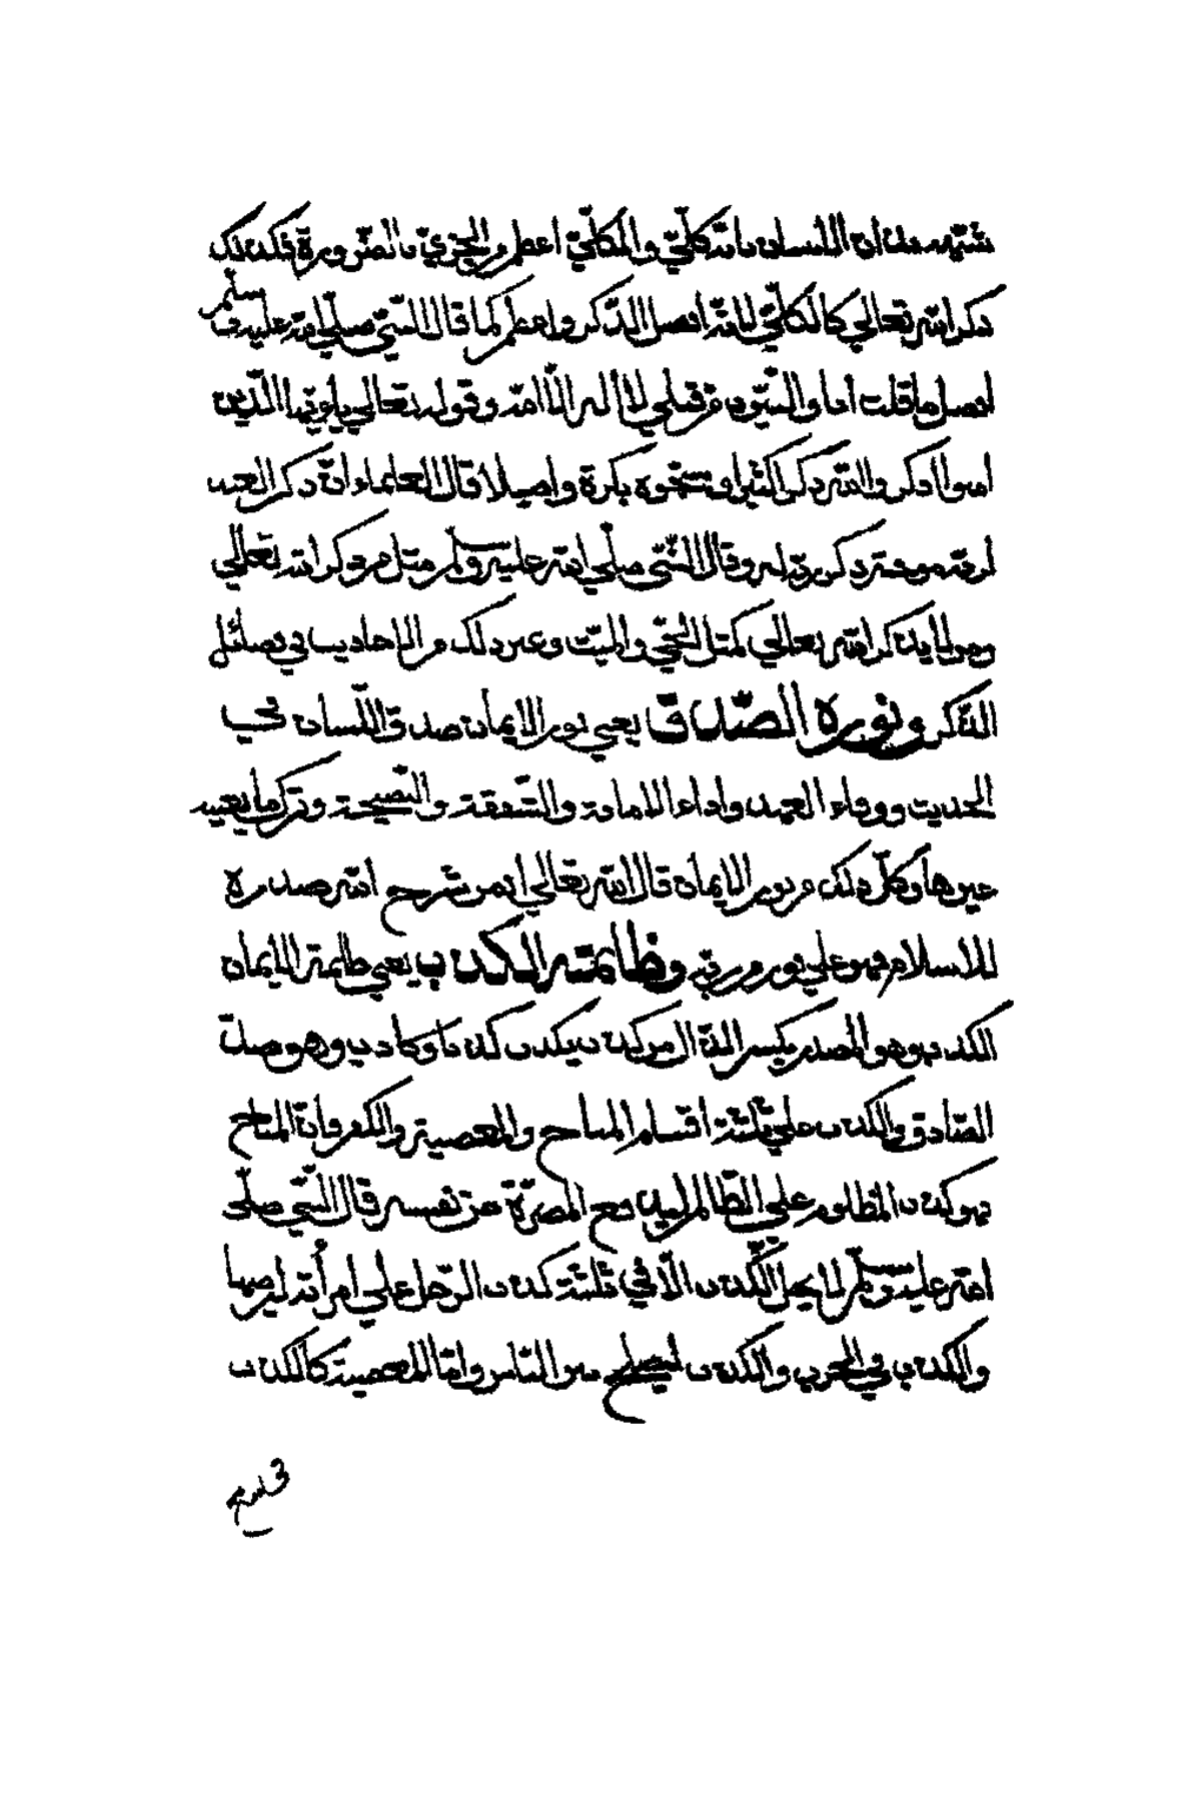 شبه بدن الانسان بانه كلّي والكلّي اعظم من الجزئي بالضرورة فكذلك
ذكر الله تعالى كالكلّي لانه افضل الذكر واعظم كما قال النبي صلّى الله عليه وسلم
افضل ما قلت انا والنبيّون من قبلي لا اله الّا الله وقوله تعالى يا ايها الذين
امنوا اذكروا الله ذكرا كثيرا وسبّحوه بكرة واصيلا قال العلماء انّ ذكر العبد
لربّه هو ذكر ربّه له وقال النبّي صلّى الله عليه وسلم مثل من ذكر الله تعالى
ومن لا يذكر الله تعالى كمثل الحيّ والميّت وغير ذلك من الاحاديث في فضائل
الذّكر ونوره الصّدق يعني نور الايمان صدق اللّسان في
الحديث ووفاء العهد واداء الامانة والشّفقة والنّصيحة وترك ما يعيب
غيرها وكلّ ذلك من نور الايمان قال الله تعالى افمن شرح الله صدره
للاسلام فهو على نور من ربّه وظلمته الكذب يعني ظلمة الايمان
الكذب وهو المصدر بكسر الذال من كذب يكذب كذبا وكاذب وهو ضدّ
الصّادق والكذب على ثلثة اقسام المباح والمعصية والكفر فامّا المباح
فهو كذب المظلوم على الظّالم ليدفع المضرّة عن نفسه قال النّبي صلّى
الله عليه وسلم لا يحلّ الكذب الّا في ثلثة كذب الرّجل على امرأته ليرضيها
والكذب في الحرب والكذب ليصلح بين النّاس وامّا المعصية كالكذب